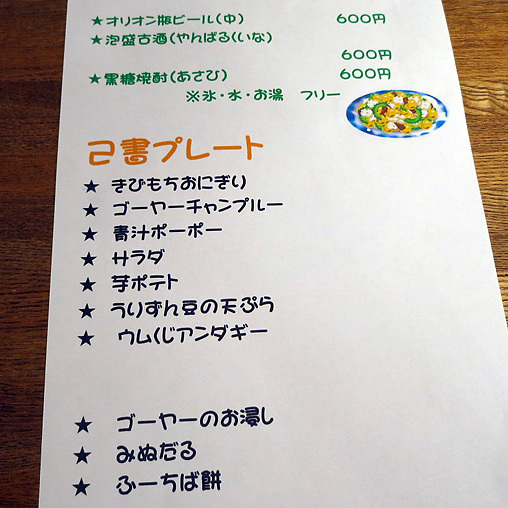 ★オリオン瓶ビール(中) 600円
★泡盛古酒(やんばるくいな)
600円
★黒糖焼酎(あさひ) 600円
※氷・水・お湯 フリー
己書プレート
★ きびもちおにぎり
★ ゴーヤーチャンプルー
★ 青汁ポーポー
★ サラダ
★ 芋ポテト
★ うりずん豆の天ぷら
★ ウムくじアンダギー
★ ゴーヤーのお浸し
★ みぬだる
★ ふーちば餅